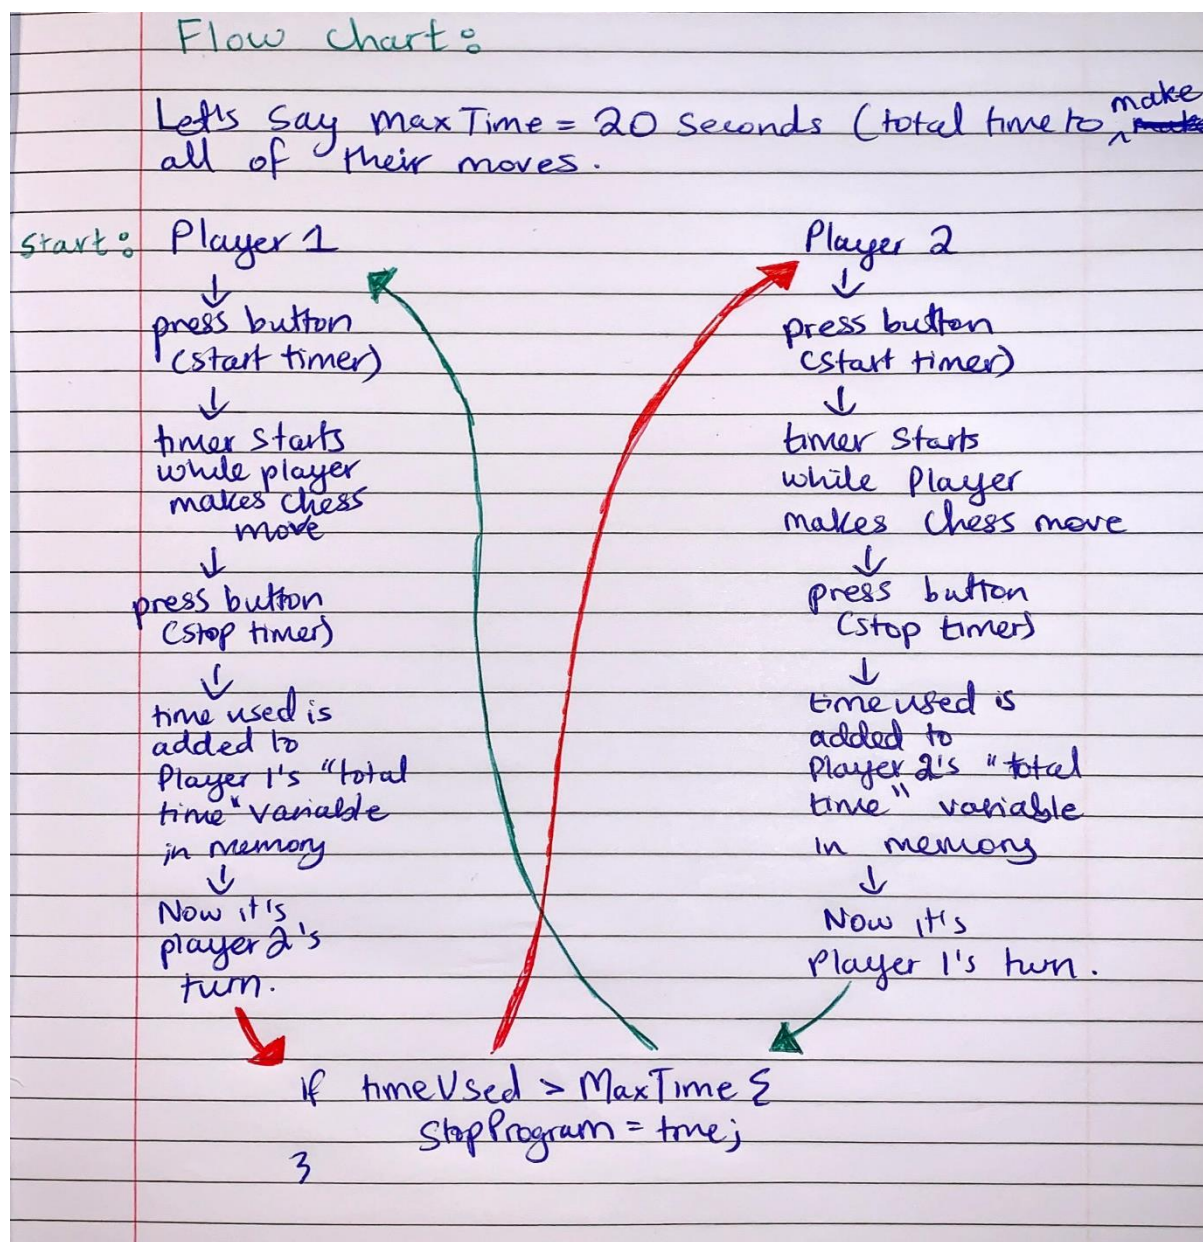 Flow chart:
Let's say maxTime = 20 seconds (total time to make
all of their moves.
Start: Player 1
↓
press button
(start timer)
↓
timer starts
while player
makes chess
move
↓
press button
(stop timer)
↓
time used is
added to
Player 1's "total
time" variable
in memory
↓
Now it's
player 2's
turn.
Player 2
↓
press button
(start timer)
↓
timer starts
while Player
makes chess move
↓
press button
(stop timer)
↓
time used is
added to
Player 2's "total
time" variable
in memory
↓
Now it's
Player 1's turn.
if timeUsed > MaxTime {
stopProgram = true;
}